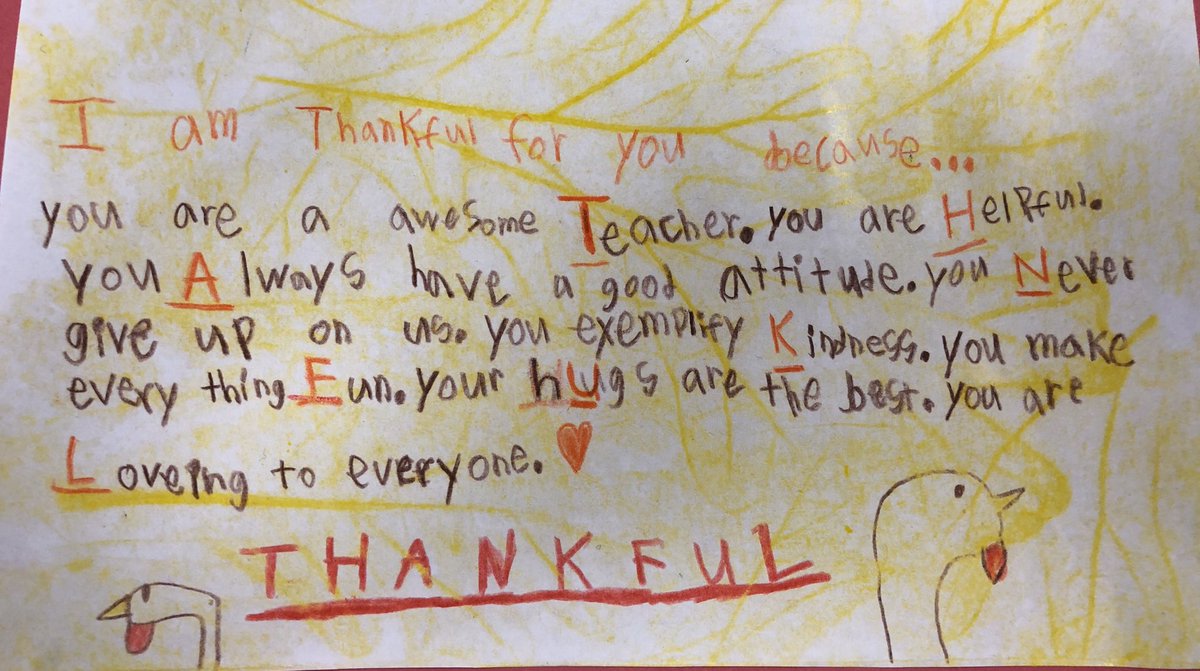 I am Thankful for you because...
you are a awesome Teacher. you are Helpful.
you Always have a good attitude. you Never
give up on us. you exemplify Kindness. you make
every thing Fun. your hUgs are the best. you are
Loveing to everyone.
THANKFUL